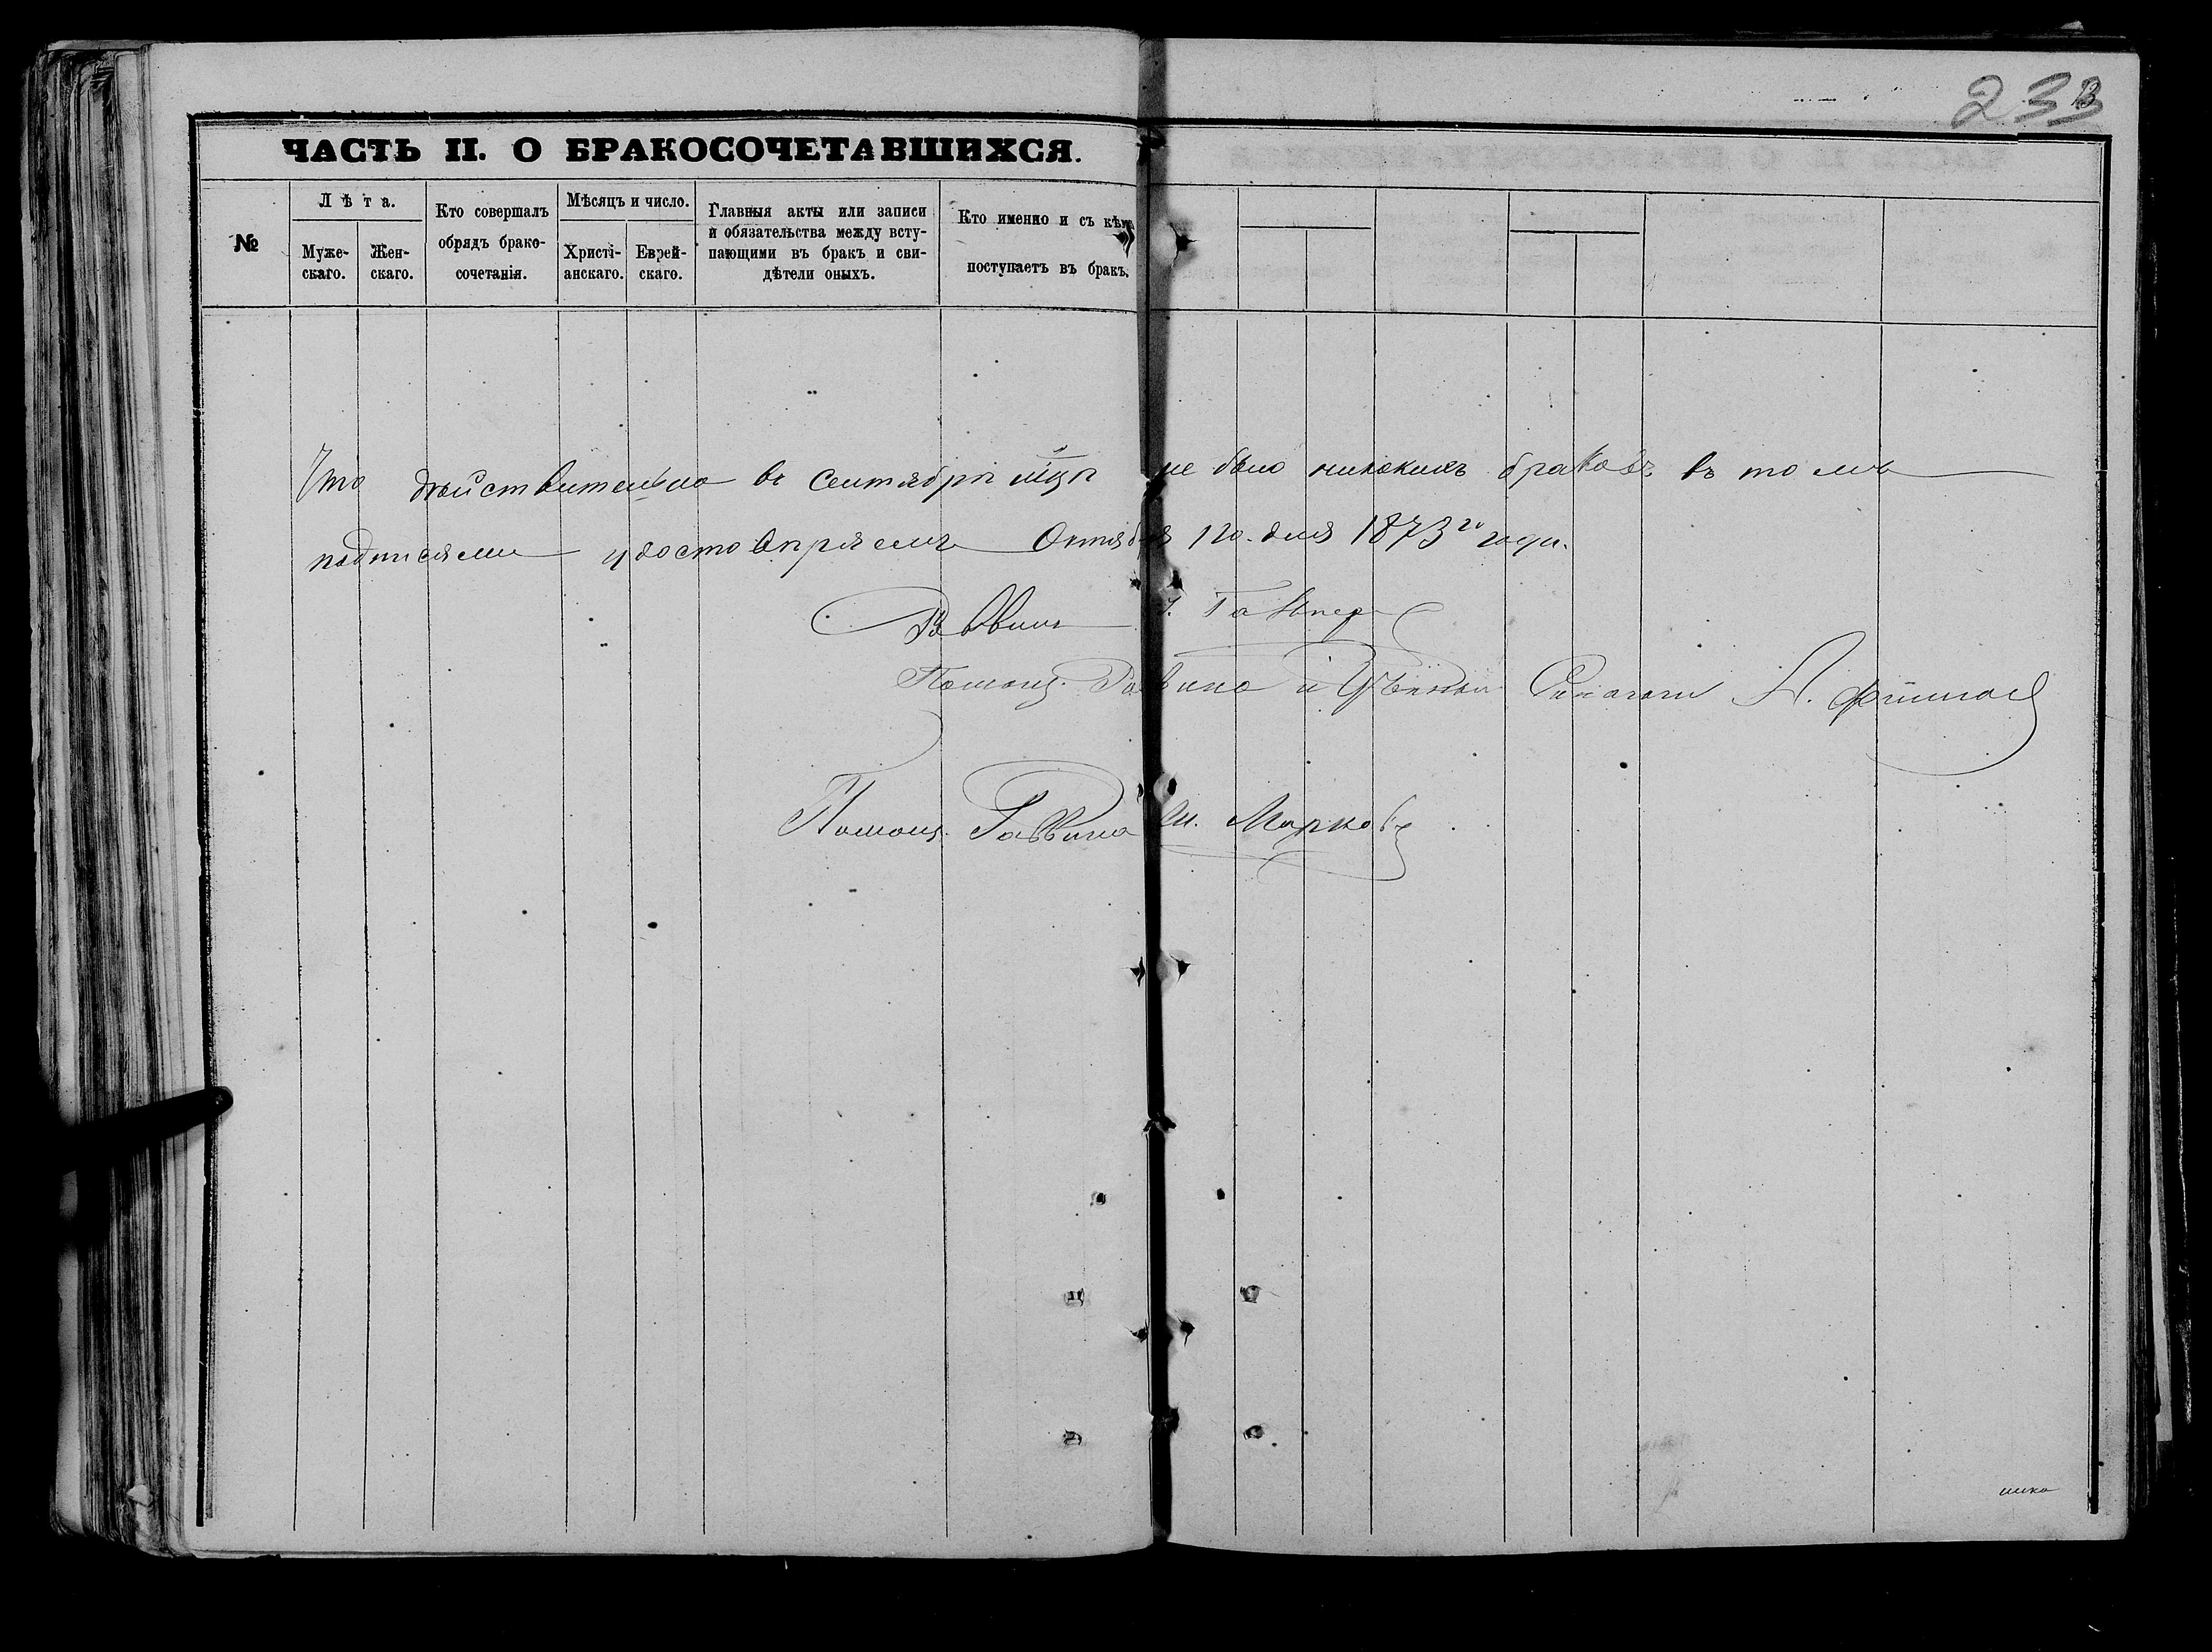 233
13
ЧАСТЬ II. О БРАКОСОЧЕТАВШИХСЯ.
№
Лѣта.
Муже-
скаго.
Жен-
скаго.
Кто совершалъ
обрядъ брако-
сочетанія.
Мѣсяцъ и число.
Христі-
анскаго.
Еврей-
скаго.
Главныя акты или записи
и обязательства между всту-
пающими въ бракъ и сви-
дѣтели оныхъ.
Кто именно и съ кѣмъ
поступаетъ въ бракъ.
Что дѣйствительно въ Сентябрѣ мцѣ не было никакихъ браковъ въ томъ
подписями удостовѣряемъ Октября 1го. дня 1873го года.
Раввинъ
Помощ. Раввина и Ученый Синагоги А.
Помощ. Раввина М. Марковъ